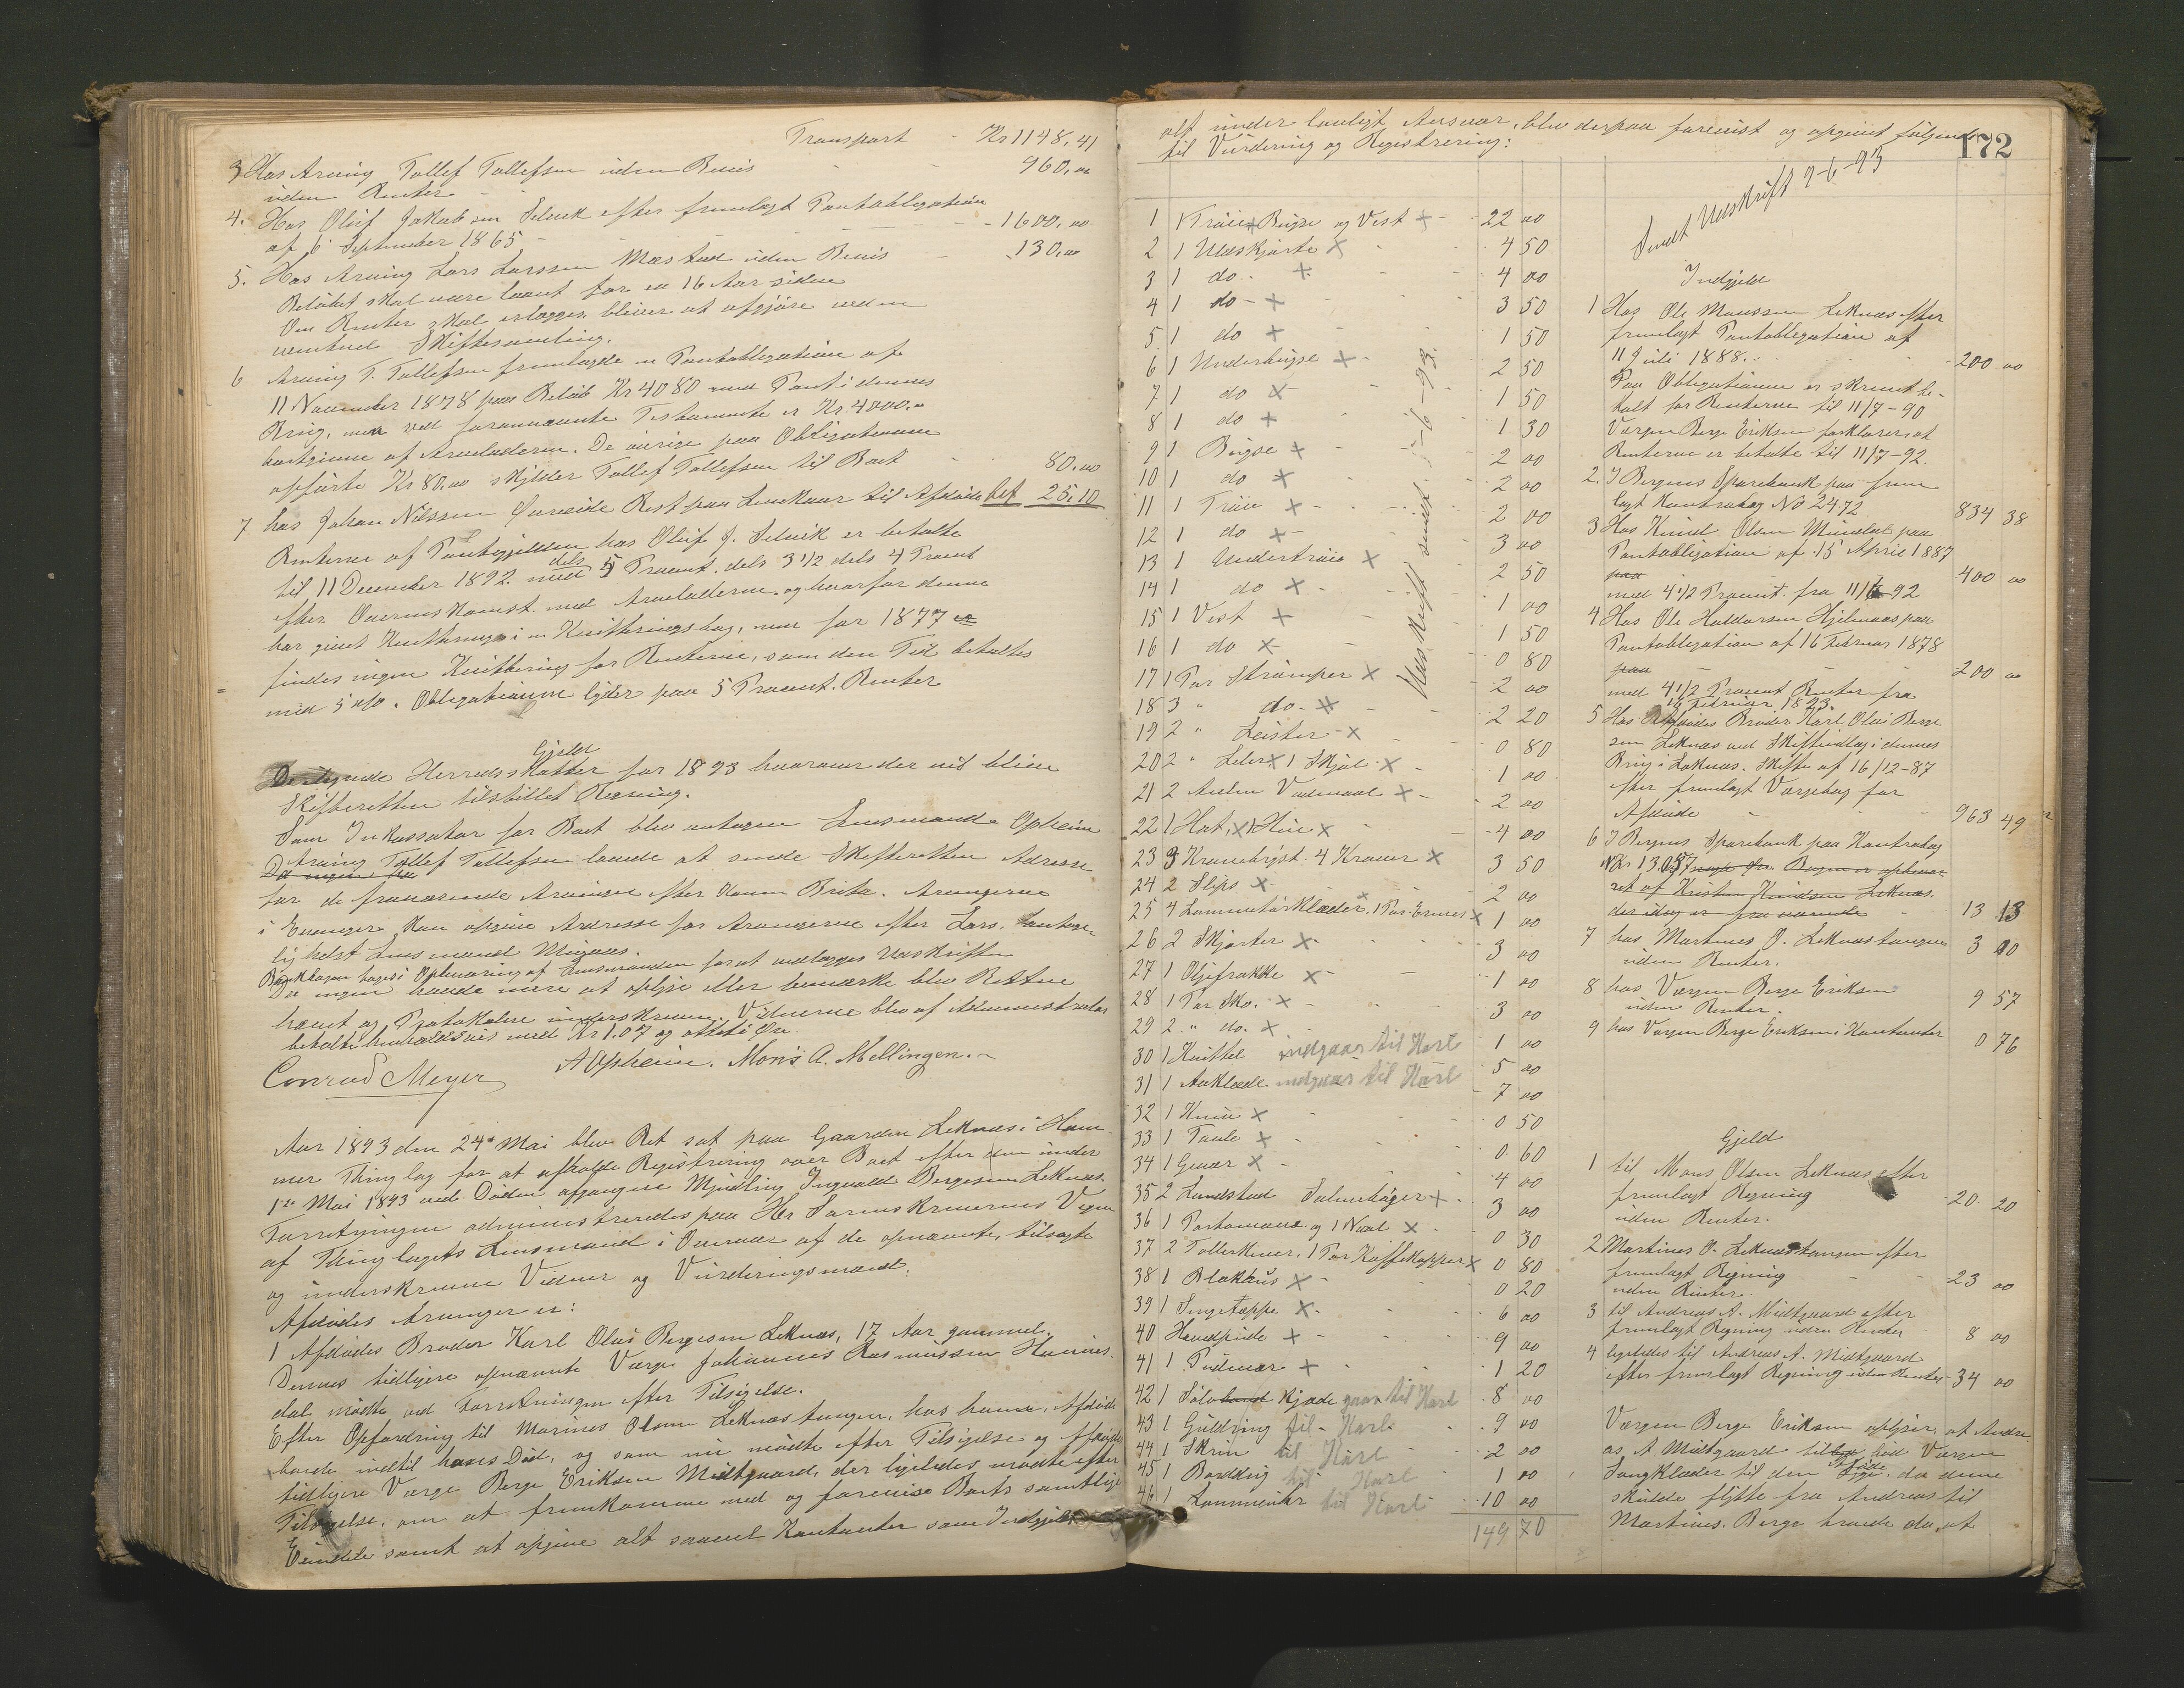 Transport - Kr 1148,41
3 Hos Arving Tollef Tollefsen uden Bevis - - 960,00
uden Renter
4. Hos Oluf Jakobsen Selvik efter fremlagt Pantobligation
af 6 September 1865 - - - - 1600,00
5. Hos Arving Lars Larssen Mæstad uden Bevis - 130,00
Beløbet skal være laant for ca 16 Aar siden
Om Renter skal erlægges bliver at afgjøre under
eventuel Skiftesamling.
6 Arving T. Tollefsen fremlagde en Pantobligation af
11 November 1878 paa Beløb Kr 4080 med Pant i dennes
Brug, men ved forannævnte Testamente er Kr. 4000.-
bortgivne af Arveladeren. De øvrige paa Obligationen
opførte Kr 80,00 skylder Tollef Tollefsen til Boet - 80,00
7 hos Johan Nilssen Rest paa til Afdøde bet 25,10
Renterne af Pantegjelden hos Oluf J. Selvik er betalte
til 11 December 1892. med dels 5 Procent. dels 3 1/2 dels 4 Procent
efter Overenskomst med Arveladeren. og hvorfor denne
har givet Kvittering i en Kvitteringsbog, men for 1877 er
findes ingen Kvittering for Renterne, som den Tid betaltes
med 5 o/o. Obligationen lyder paa 5 Procent. Renter
Gjeld
Herredsskatter for 1893 hvorover der vil blive
Skifteretten tilstillet Regning.
Som Inkassator for Boet blev antagen Lensmand Opheim
Arving Tollef Tollefsen lovede at sende Skifteretten Adresse
Da ingen
for de fraværende Arvinger efter Konen Brita. Arvingerne
i Evanger kan opgive Adresse for Arvingerne efter Lars,
helst Lensmand
toges i Opbevaring af Lensmanden for at vedlægges Udskriften
Da ingen havde mere at oplyse eller bemærke blev Retten
hævet og Protokollen underskreven. Vidnerne blev af Administrator
betalte henholdsvis med Kr 1.07 og otteti Øre.
Conrad Meyer AOpheim. Mons A. Mellingen.
Aar 1893 den 24de Mai blev Ret sat paa Gaarden Leknæs i Ham-
mer Thinglag for at afholde Registrering over Boet efter den under
1ste Mai 1893 ved Døden afgangne Myndling Ingvald Bergesen Leknæs.
Forretningen administreredes paa Hr Sorenskriverens Vegne
af Thinglagets Lensmand i Overvær af de opnævnte, tilsagte
og underskrevne Vidner og Vurderingsmænd.
Afdødes Arvinger er:
1 Afdødes Broder Karl Olai Bergesen Leknæs, 17 Aar gammel.
Dennes tidligere opnævnte Værge Johannes Rasmussen
dal mødte ved Forretningen efter Tilsigelse.
Efter Opfordring til Martines Olsen Leknæstangen, hos hvem Afdøde
havde indtil hans Død, og som nu mødte efter Tilsigelse og Afdødes
tidligere Værge Berge Eriksen Midtgaard, der ligeledes mødte efter
Tilsigelse, om at fremkomme med og forevise Boets samtlige
Eiendele samt at opgive alt saavel Kontanter som Indgjeld
172
alt under lovligt Ansvar, blev derpaa forevist og opgivet følgende
til Vurdering og Registrering:
Udskrift sendt 9-6-93.
1 1 Trøie + Buxe og Vest x - 22 00
2 1 Uldskjorte x - 4 50
3 1 do. + - 4 00
4 1 do - + 3 50
5 1 do + 1 50
6 1 Underbuxe + 2 50
7 1 do x 1 50
8 1 do + 1 30
9 1 Buxe + 2 00
10 1 do x 2 00
11 1 Trøie x 2 00
12 1 do + 3 00
13 1 Undertrøie x 2 50
14 1 do x 1 00
15 1 Vest + 1 50
16 1 do x 0 80
17 1 Par Strømper x 2 00
18 3 " do - x 2 20
19 2 " Leister - x 0 80
20 2 " Seler x 1 Skjol x 1 00
21 2 Alen Vadmaal x 2 00
22 1 Hat, x 1 Hue x 4 00
23 3 Kravebryst. 4 Kraver x 3 50
24 2 Slips x 2 00
25 4 Lommetørklæder x 1 Par Ermer x 1 00
26 2 Skjorter x 3 00
27 1 Oljefrakke x 1 00
28 1 Par Sko. x 3 00
29 2 " do. x 1 00
30 1 Kvittel indgaar til Karl 5 00
31 1 Aaklæde indgaar til Karl 7 00
32 1 Kniv x 0 50
33 1 Tavle x 0 60
34 1 Gevær x 4 00
35 2 Landstad Salmebøger x 3 00
36 1 Portemonæ og 1 Naal x 0 30
37 2 Tallerkener, 1 Par Kaffekopper x 0 80
38 1 Blækhus x 0 20
39 1 Sengetæppe x 6 00
40 Hovedpude x 9 00
41 1 Pudevar x 1 20
42 1 Sølv kjæde gaar til Karl 8 00
43 1 Guldring til Karl 9 00
44 1 Skrin til Karl 2 00
45 1 Borddug til Karl 1 00
46 1 Lommeuhr til Karl 10 00
149 70
Sendt Udskrift 9-6-93
Indgjeld
1 Hos Ole Monssen Leknæs efter
fremlagt Pantobligation af
11 Juli 1888. - 200 00
Paa Obligationen er skrevet be-
talt for Renterne til 11/7-90
Værgen Berge Eriksen forklarer, at
Renterne er betalte til 11/7-92.
2. I Bergens Sparebank paa frem-
lagt Kontrabog No 2472 834 38
3 Hos Knud Olsen Mundal paa
Pantobligation af 15 April 1887
paa 400 00
med 4 1/2 Procent. fra 11/6-92
4 Hos Ole Haldorsen Hjelmaas paa
Pantobligation af 16 Februar 1878
paa - 200 00
med 4 1/2 Procent Renter fra
16 Februar 1893.
5 Hos Afdødes Broder Karl Olai Berge-
sen Leknæs ved Skifteudlæg i dennes
Brug i Leknæs. Skifte af 16/12-87
efter fremlagt Værgebog for
Afdøde - 963 49
6 I Bergens Sparebank paa Kontrabog
No 1305 Bogen er opbeva-
ret af Kristen Knudsen Leknæs.
der idag er fraværende 13 13
7 hos Martines O. Leknæstangen 3 00
uden Renter.
8 hos Værgen Berge Eriksen
uden Renter. 9 57
9 hos Værgen Berge Eriksen i Kontanter 0 76
Gjeld
1 til Mons Olsen Leknæs efter
fremlagt Regning 20 20
uden Renter.
2 Martines O. Leknæstangen efter
fremlagt Regning - - 23 00
uden Renter.
3 til Andreas A. Midtgaard efter
fremlagt Regning uden Renter - 8 00
4 ligeledes til Andreas A. Midtgaard
efter fremlagt Regning uden Renter 34 00
Værgen Berge Eriksen oplyser, at Andre-
as A. Midtgaard tilbød Værgen
Sengklæder til den Afdøde, da denne
skulde flytte fra Andreas til
Martines. Berge troede da, at